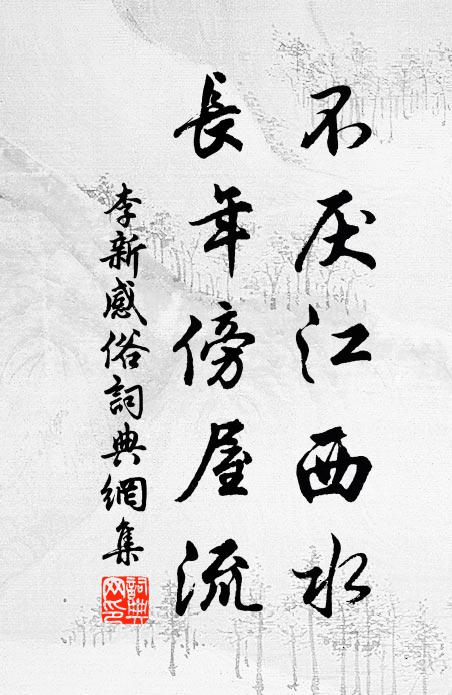 不厌江西水
長年傍屋流
李新感俗詞典網集
詞典网印